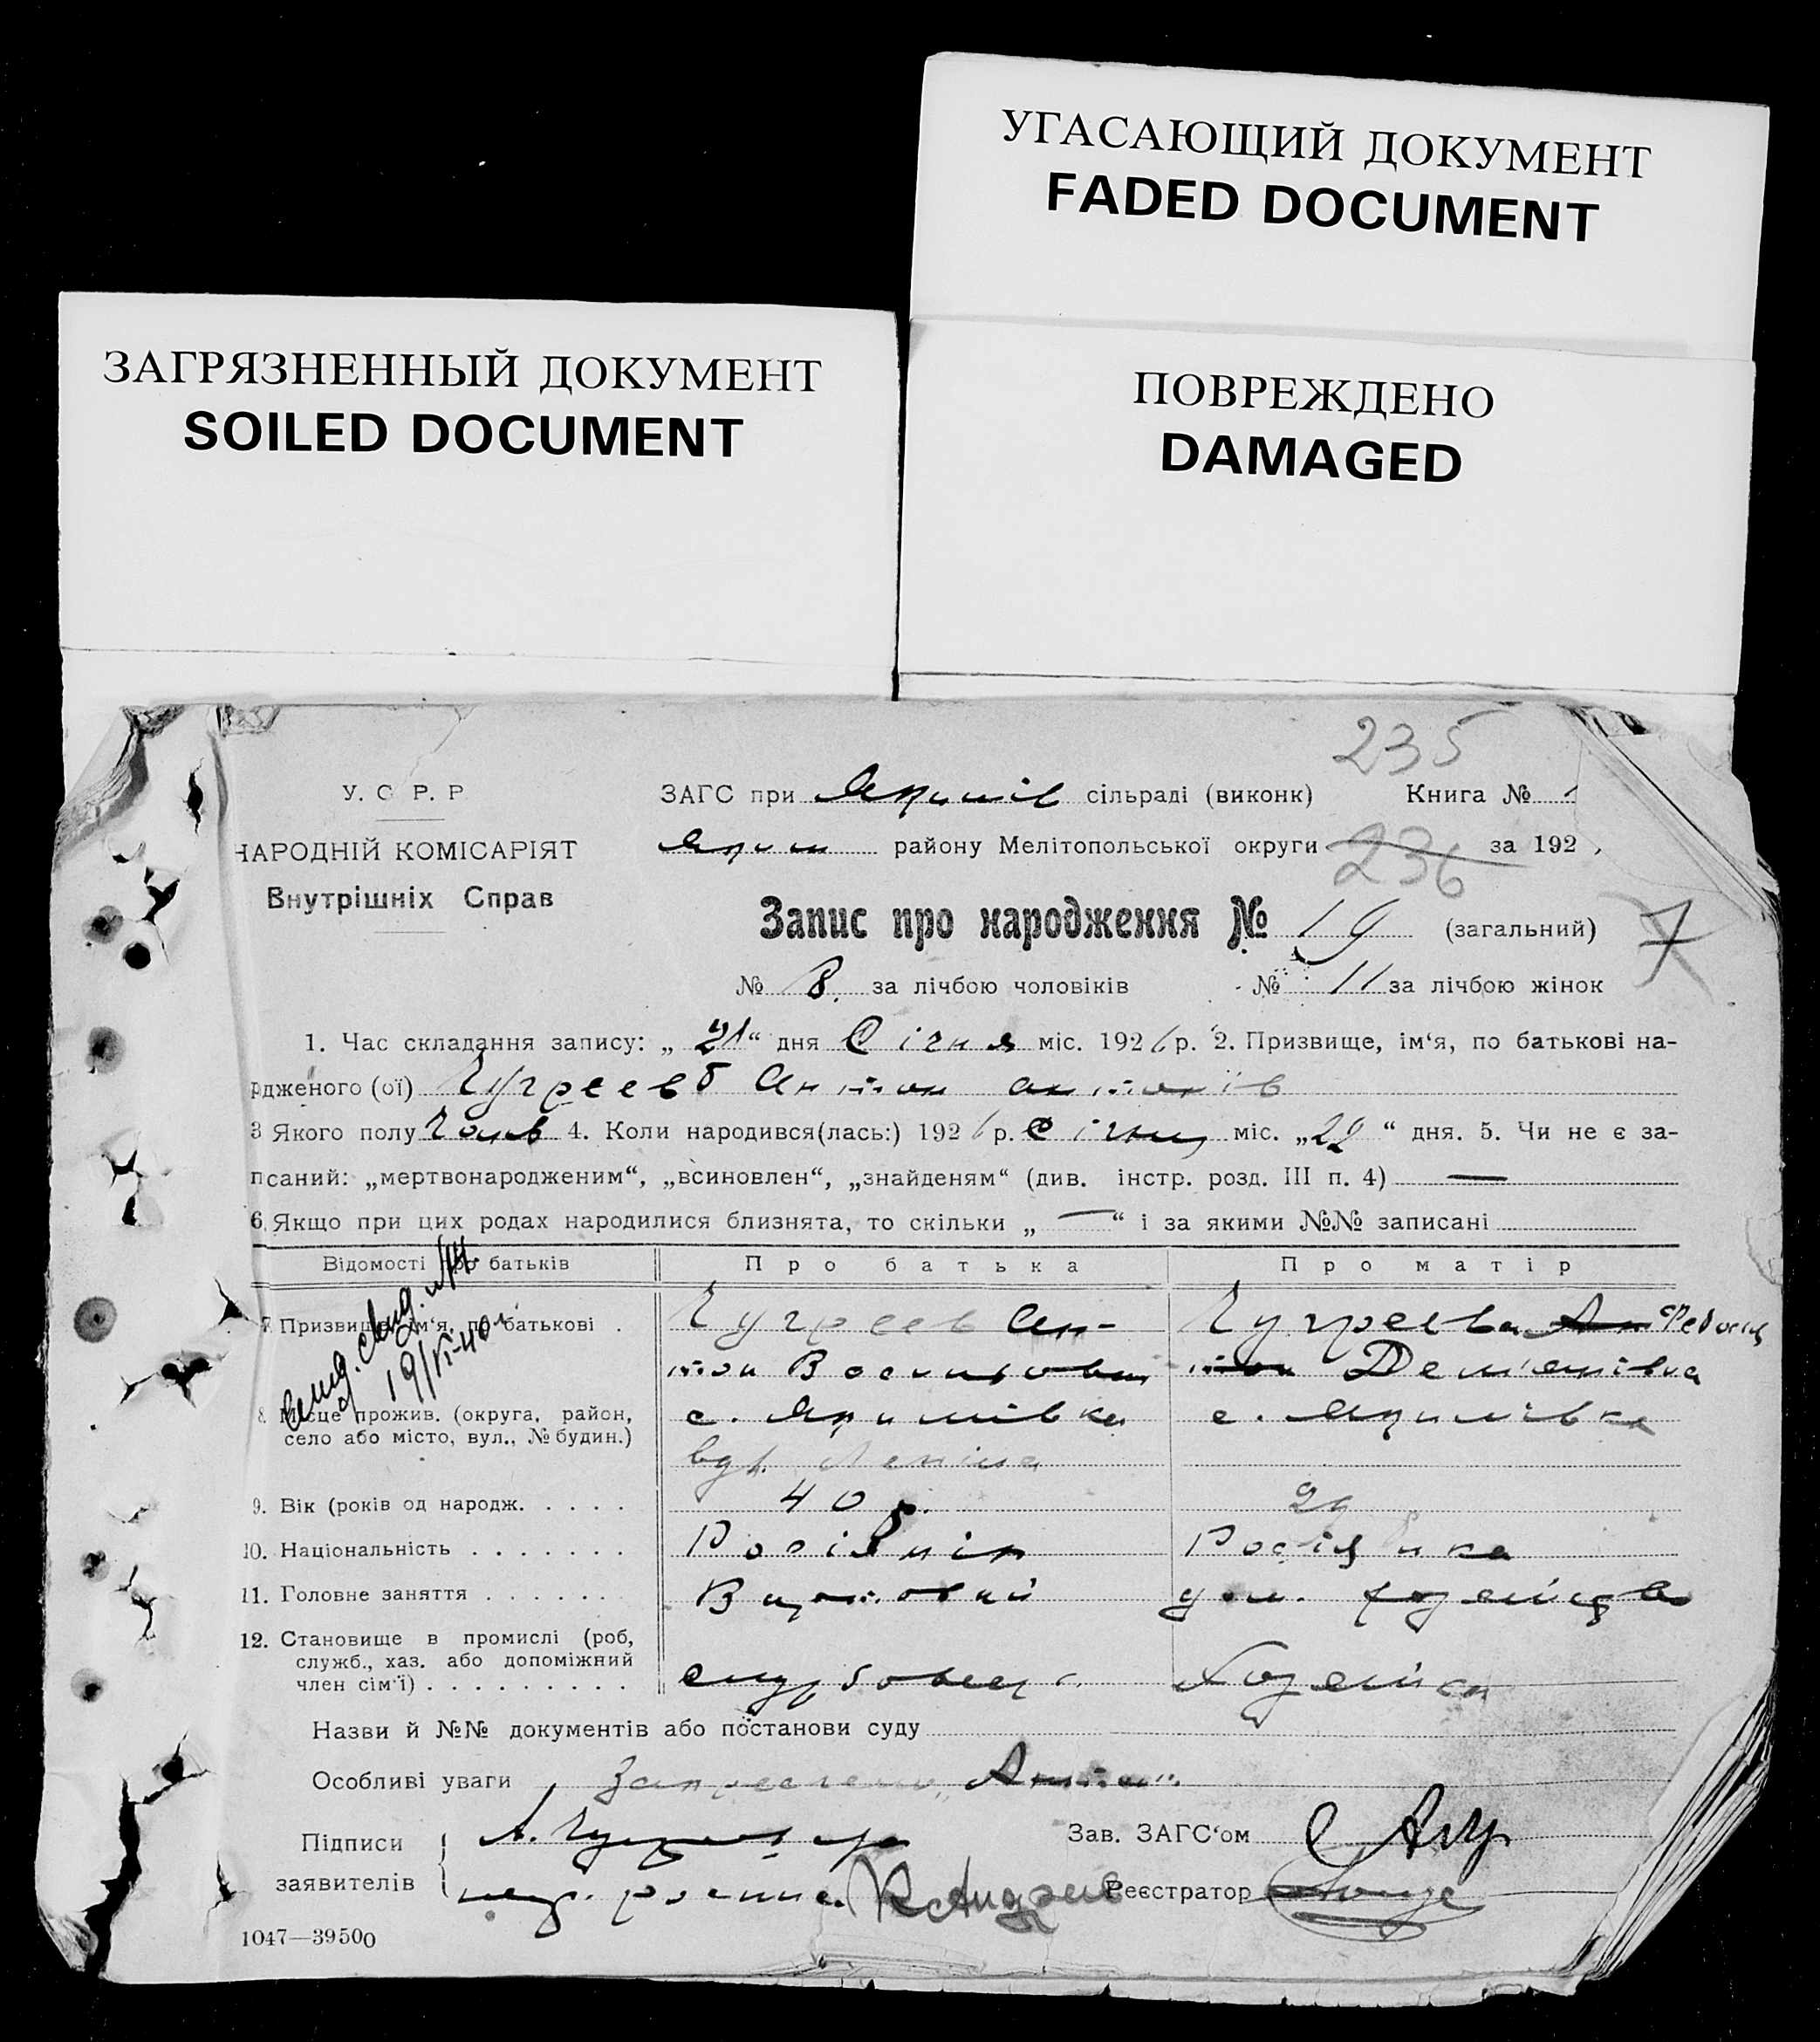 УГАСАЮЩИЙ ДОКУМЕНТ
FADED DOCUMENT
ЗАГРЯЗНЕННЫЙ ДОКУМЕНТ
SOILED DOCUMENT
ПОВРЕЖДЕНО
DAMAGED
235
У. С. Р. Р
ЗАГС при Якимів сільраді (виконк) Книга №
НАРОДНІЙ КОМІСАРІЯТ
Внутрішніх Справ
Яким району Мелітопольської округи 236 за 192
Запис про народження № 19 (загальний) 7
№ 8. за лічбою чоловіків № 11 за лічбою жінок
1. Час складання запису: „ “ дня Січня міс. 1926 р. 2. Призвище, ім‘я, по батькові на-
рдженого (ої) Чугреев Антон антонів
3 Якого полу Чолов 4. Коли народився(лась:) 1926 р. Січня міс. „22“ дня. 5. Чи не є за-
псаний: „мертвонародженим“, „всиновлен“, „знайденям“ (див. інстр. розд. III п. 4) —
6. Якщо при цих родах народилися близнята, то скільки „—“ і за якими №№ записані
Відомості про батьків Про батька Про матір
7. Призвище ім‘я, по батькові . Чугреев Ан- Чугреева Ан Федосія
тон Васильович тон Дем‘янівна
19/VI-40
8. Місце прожив. (округа, район, с. Якимівка с. Якимівка
село або місто, вул., № будин.)
вул. Леніна
9. Вік (років од народж. . . . . 40 р. 29
10. Національність . . . . . . . Росіянін Росіянка
11. Головне заняття . . . . . . .
12. Становище в промислі (роб,
служб., хаз. або допоміжний
член сім‘ї) . . . . . . . . .
Назви й №№ документів або постанови суду
Особливі уваги Закреслено „Антон“
Підписи Зав. ЗАГС‘ом
заявителів Реєстратор
1047—39500